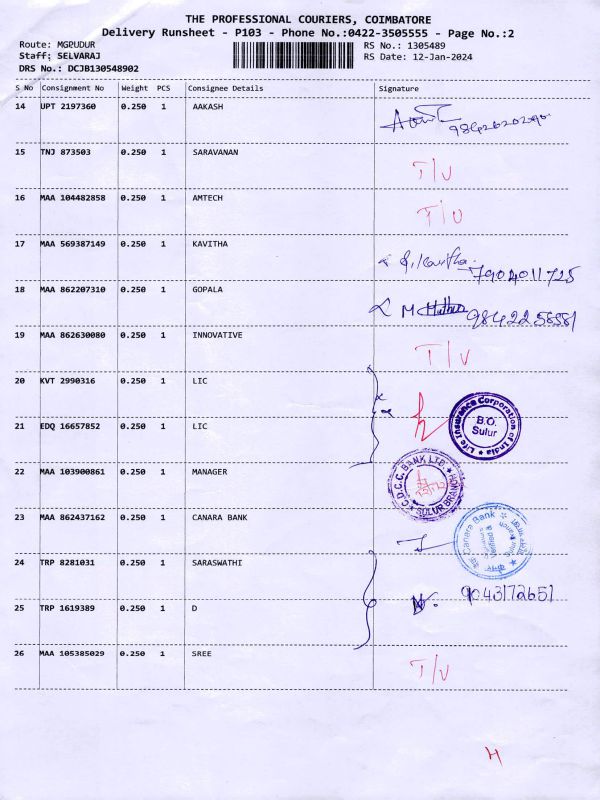 THE PROFESSIONAL COURIERS, COIMBATORE
Delivery Runsheet - P103 - Phone No.:0422-3505555 - Page No.:2
Route: MGRUDUR RS No.: 1305489
Staff: SELVARAJ RS Date: 12-Jan-2024
DRS No.: DCJB130548902
S No Consignment No Weight PCS Consignee Details Signature
14 UPT 2197360 0.250 1 AAKASH
15 TNJ 873503 0.250 1 SARAVANAN T/U
16 MAA 104482858 0.250 1 AMTECH T/U
17 MAA 569387149 0.250 1 KAVITHA S. Kavitha
7904011725
18 MAA 862207310 0.250 1 GOPALA M
9842258581
19 MAA 862630080 0.250 1 INNOVATIVE T/U
20 KVT 2990316 0.250 1 LIC
21 EDQ 16657852 0.250 1 LIC
Life Insurance Corporation of India
B.O.
Sulur
22 MAA 103900861 0.250 1 MANAGER
C.D.C.C. BANK LTD.
SULUR BRANCH
23 MAA 862437162 0.250 1 CANARA BANK
Canara Bank
24 TRP 8281031 0.250 1 SARASWATHI
9043172651
25 TRP 1619389 0.250 1 D
26 MAA 105385029 0.250 1 SREE T/U